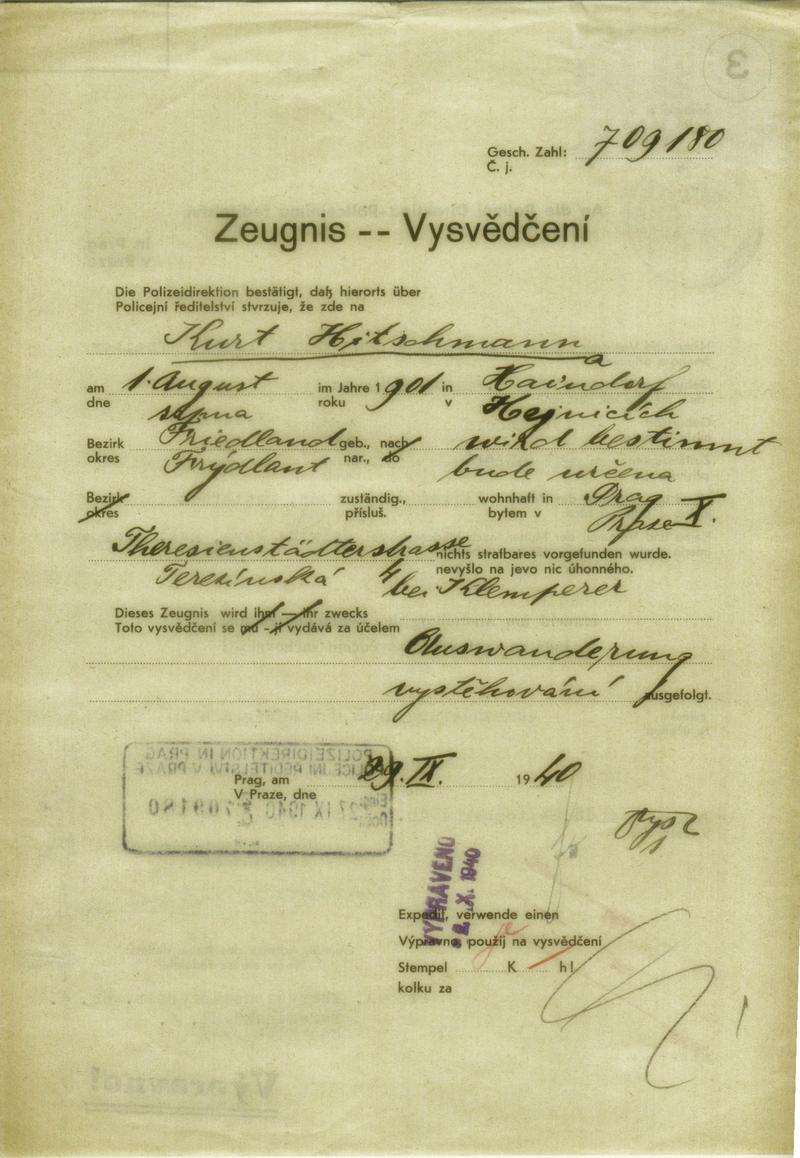 3
Gesch. Zahl: 709180
Č. j.
Zeugnis -- Vysvědčení
Die Polizeidirektion bestätigt, daß hierorts über
Policejní ředitelství stvrzuje, že zde na
Kurt Hitschmann
a
am 1. August im Jahre 1901 in Haindorf
dne srpna roku v Hejnicích
Bezirk Friedland geb., nach wird bestimmt
okres Frýdlant nar., do bude určena
Bezirk zuständig., wohnhaft in Prag
okres přísluš. bytem v Praze X.
Theresienstädterstrasse nichts strafbares vorgefunden wurde.
Terezínská 4 nevyšlo na jevo nic úhonného.
bei Klemperer
Dieses Zeugnis wird ihm — ihr zwecks
Toto vysvědčení se mu - jí vydává za účelem
Auswanderung
vystěhování ausgefolgt.
POLIZEIDIREKTION IN PRAG
POLICEJNÍ ŘEDITELSTVÍ V PRAZE
27 IX 1940 709180
Prag, am 29. IX. 1940
V Praze, dne
VYPRAVENO
2. X. 1940
Expedit, verwende einen
Výpravno, použij na vysvědčení
Stempel K h!
kolku za
Výpravno!